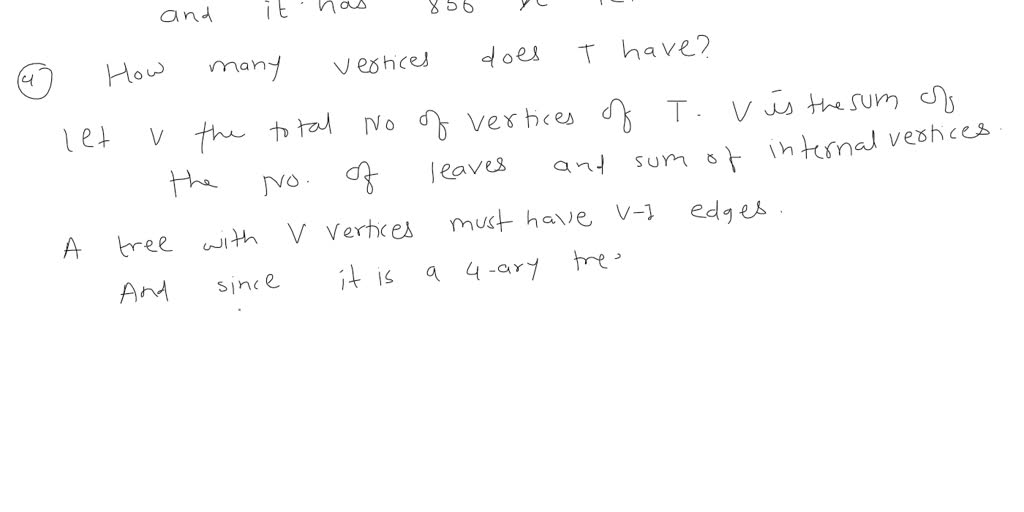 and it has 856
4 How many vertices does T have?
Let V the total No of vertices of T. V is the sum of
the No. of leaves and sum of internal vertices.
A tree with V vertices must have V-1 edges.
And since it is a 4-ary tree